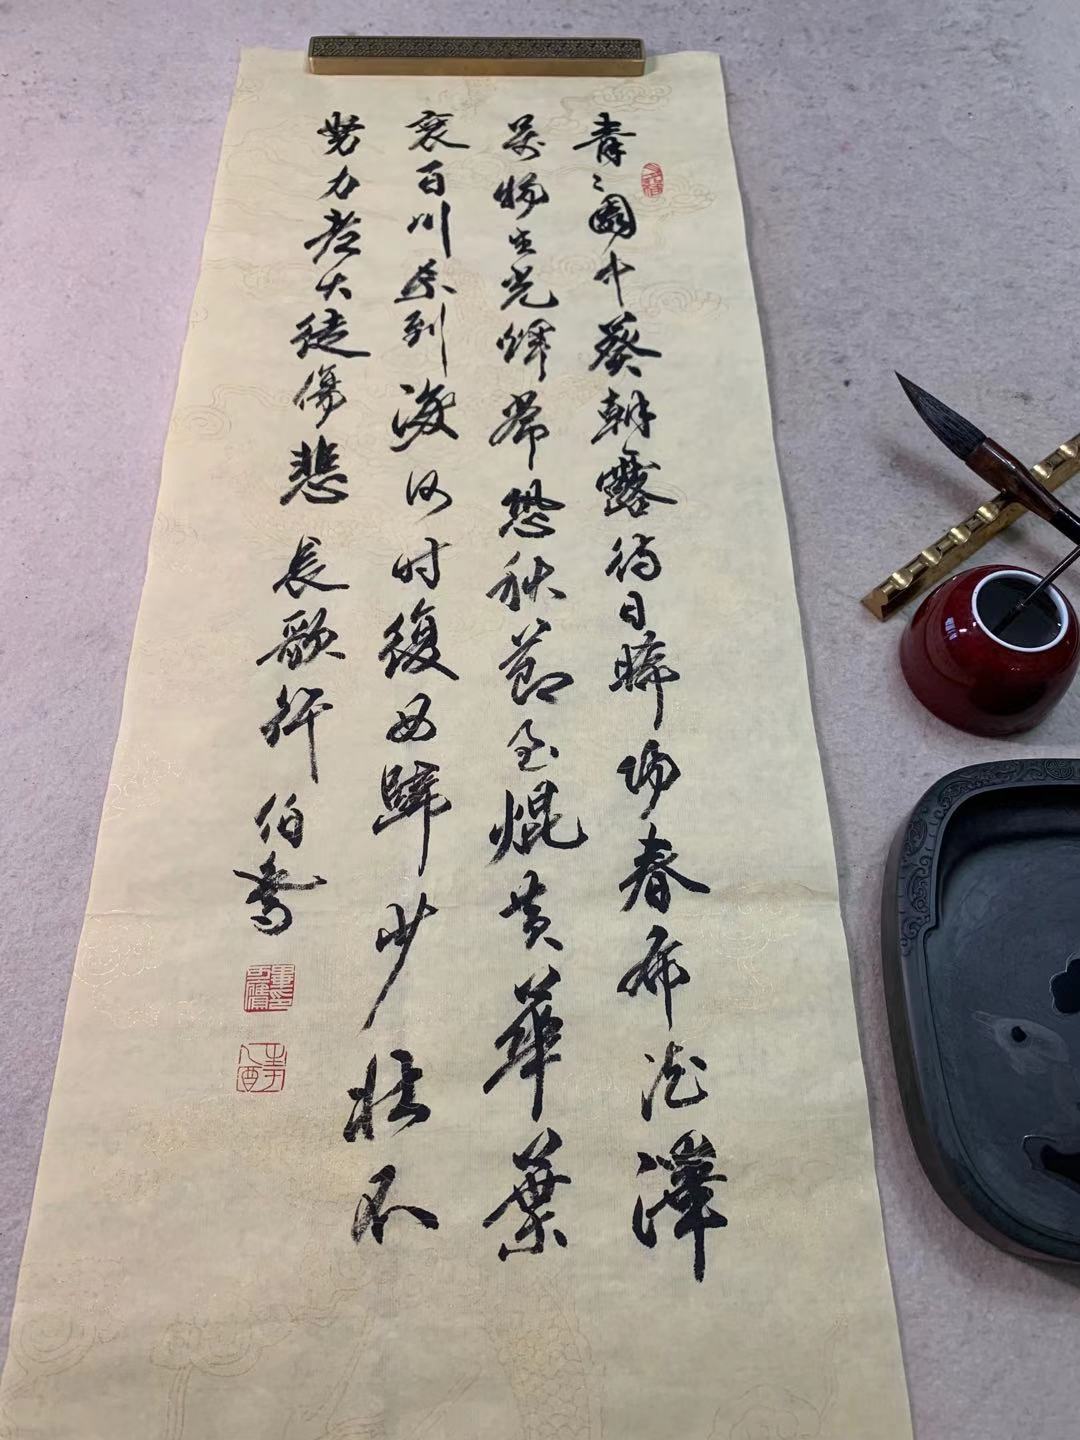 青〻園中葵朝露待日晞陽春布德澤
萬物生光輝常恐秋節至焜黄華葉
衰百川東到海何时復西歸少壯不
努力老大徒傷悲 長歌行 伯